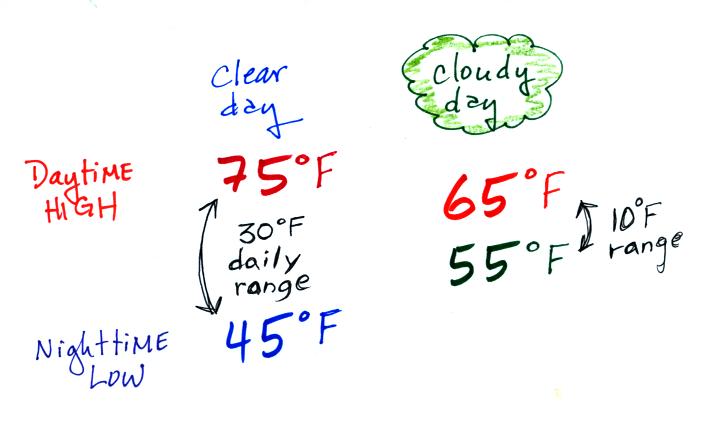 Clear
day
cloudy
day
Daytime
HIGH
75°F
30°F
daily
range
45°F
Nighttime
LOW
65°F
55°F
10°F
range